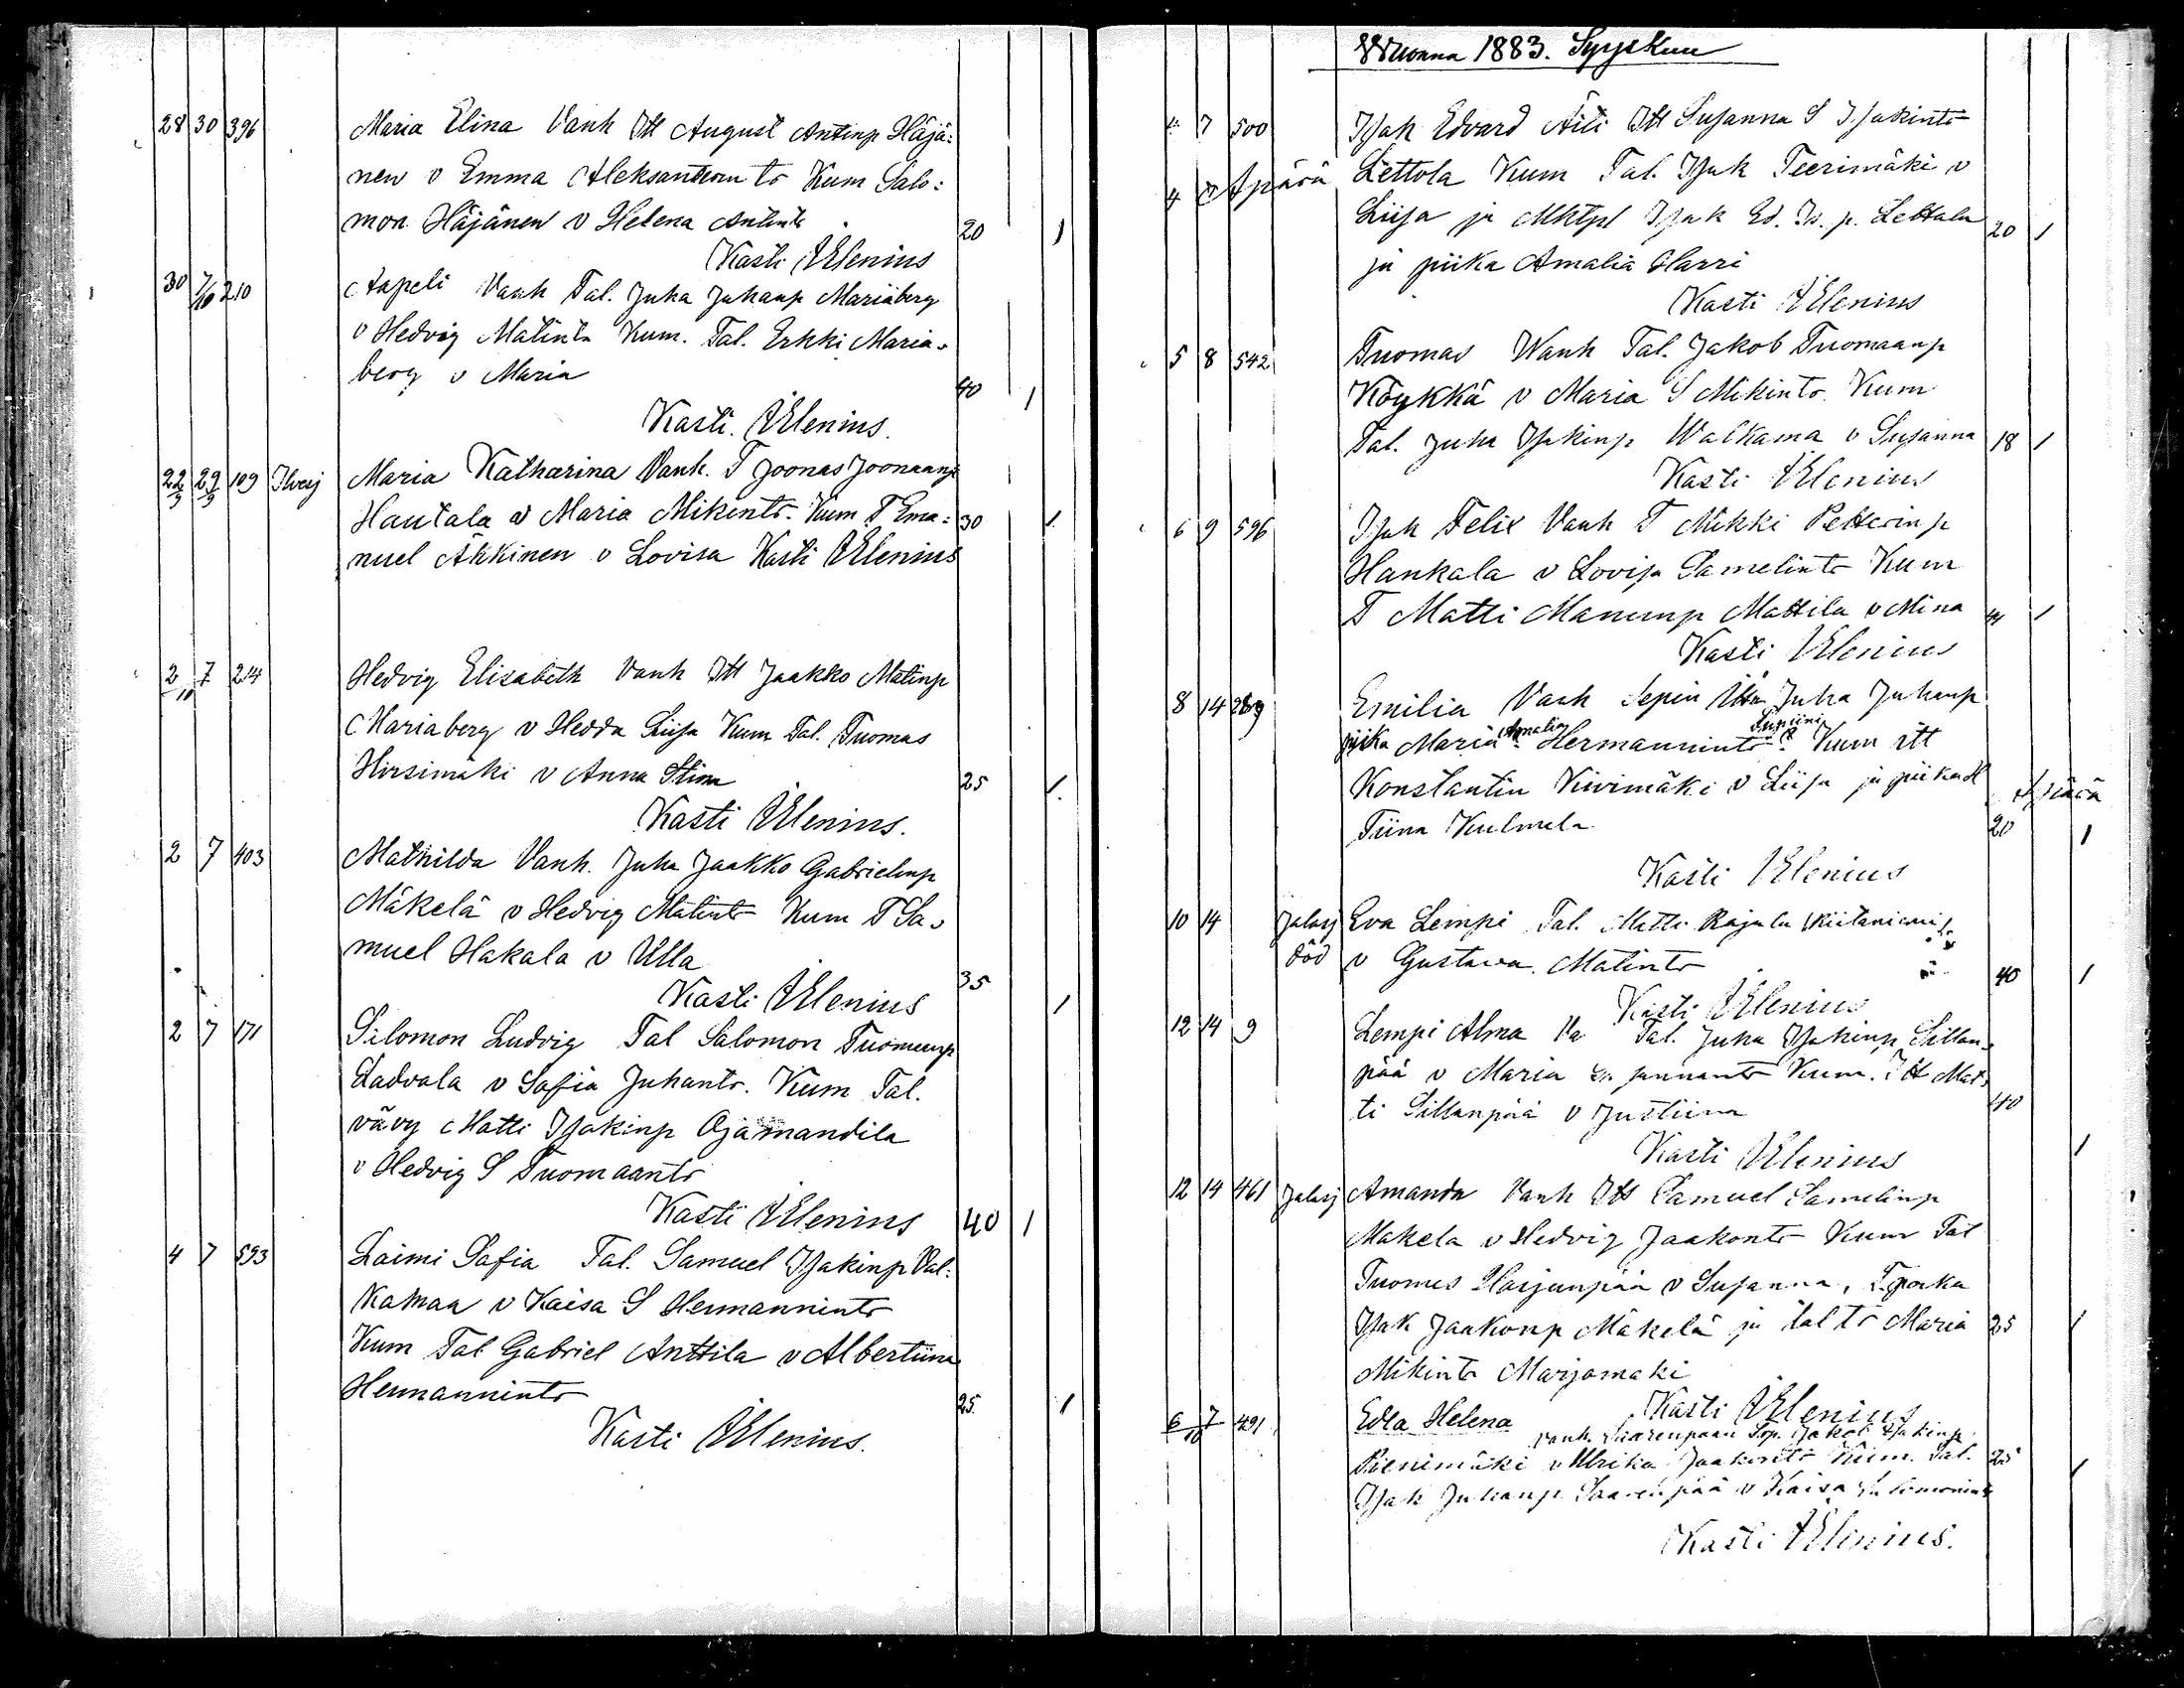 28 30 396 Maria Elina Vanh Itt August Antinp Häjä:
nen v Emma Aleksanterin tr Kum Salo:
mon Häjänen v Helena Antintr 20 1
Kasti Elenius
30 7/10 210 Aapeli Vanh Tal. Juha Juhanp Mariaberg
v Hedvig Matintr Kum. Tal. Erkki Maria-
berg v Maria 40 1
Kasti. Elenius.
22/9 29/9 109 Ilvesj Maria Katharina Vanh. T Joonas Joonaanp
Hautala v Maria Mikintr. Kum T Ema: 30 1
nuel Äkkinen v Lovisa Kasti Elenius
2/10 7 214 Hedvig Elisabeth Vanh Itt Jaakko Matinp
Mariaberg v Hedda Liisa Kum Tal. Tuomas
Hirsimäki v Anna Stina 25 1.
Kasti Elenius.
2 7 403 Mathilda Vanh. Juha Jaakko Gabrielinp
Mäkelä v Hedvig Matintr Kum T Sa-
muel Hakala v Ulla 35
Kasti Elenius 1
2 7 171 Salomon Ludvig Tal Salomon Tuomanp
Ladvala v Safia Juhantr. Kum Tal.
vävy Matti Isakinp Ojamandila
v Hedvig S Tuomaantr
Kasti Elenius 40 1
4 7 593 Laimi Safia Tal. Samuel Isakinp Val:
kamaa v Kaisa S Hermannintr
Kum Tal Gabriel Anttila v Albertiina
Hermannintr 25. 1
Kasti Elenius.
Wuonna 1883. Syyskuu
4 7 500 Isak Edvard Äiti Itt Susanna S Isakintr
4 Apärä Lettola Kum Tal. Isak Teerimäki v
Liisa ja Mktpl Isak Ed. Is. p. Lettala 20 1
ja piika Amalia Harri
Kasti Elenius
5 8 542 Tuomas Wanh Tal. Jakob Tuomaanp
Köykkä v Maria S Mikintr. Kum
Tal. Juha Isakinp Walkama v Susanna 18 1
Kasti Elenius
6 9 596 Isak Felix Vanh T Mikki Petterinp
Hankala v Lovisa Samelintr Kum
T Matti Manunp Mattila v Mina 1
Kasti Elenius
8 14 289 Emilia Vanh Sepän Juha Juhanp
piika Maria Amalia Hermannintr Kum itt
Konstantin Kivimäki v Liisa ja piika H Apärä
Tiina Kulmala 20 1
Kasti Elenius
10 14 Jalasj Eva Lempi Tal. Matti Rajala
död v Gustava Matintr 40 1
Kasti Elenius
12 14 9 Lempi Alma Va Tal. Juha Isakinp Sillan-
pää v Maria Kum. Itt Mat-
ti Sillanpää v Justiina 40
Kasti Elenius 1
12 14 461 Jalasj Amanda Vanh Itt Samuel Samelinp
Makela v Hedvig Jaakontr Kum Tal
Tuomas Harjunpää v Susanna, T. poika
Isak Jaakonp Mäkelä ja tal tr Maria 25 1
Mikintr Marjamaki
Kasti Elenius
6/10 7 491 Edla Helena vanh. Saarenpään Jakob Isakinp
Pienimäki v Ulrika Jaakontr Kum. Tal. 25
Isak Juhanp Saarenpää v Kaisa Salomonintr 1
Kasti Elenius.